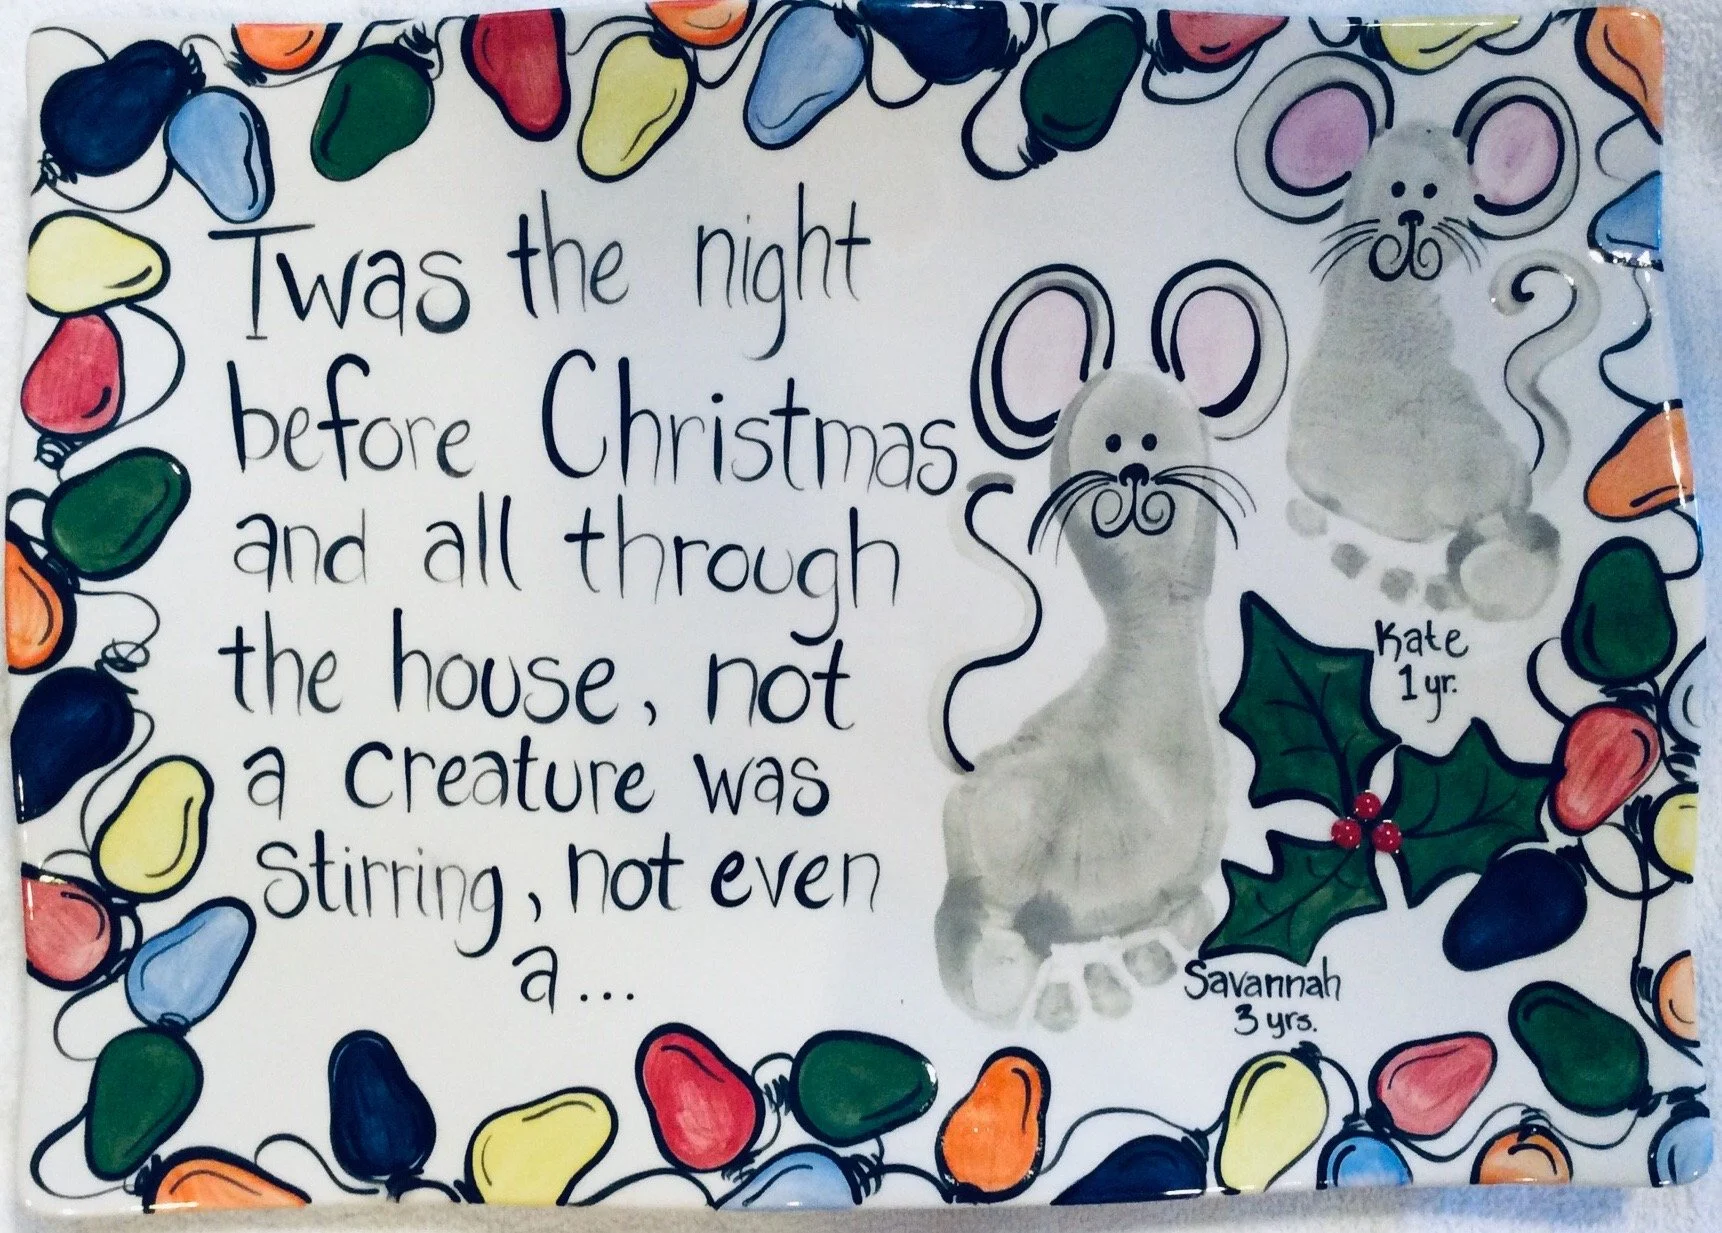 Twas the night
before Christmas
and all through
the house, not
a creature was
Stirring, not even
a...
Kate
1 yr.
Savannah
3 yrs.